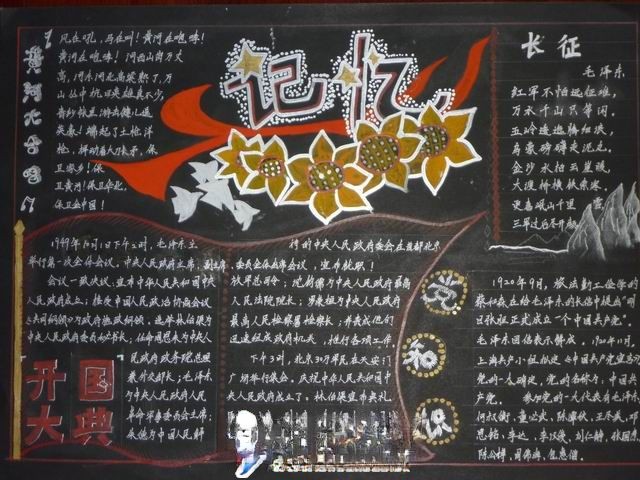 黄河大合唱
风在吼，马在叫！黄河在咆哮！
黄河在咆哮！河西山岗万丈
高，河东河北高粱熟了，万
山丛中抗日英雄真不少，
青纱帐里游击健儿逞
英豪！端起了土枪洋
枪，挥动着大刀长矛，保
卫家乡！保
卫黄河！保卫华北，
保卫全中国！
记忆
长征
毛泽东
红军不怕远征难，
万水千山只等闲。
五岭逶迤腾细浪，
乌蒙磅礴走泥丸。
金沙水拍云崖暖，
大渡桥横铁索寒。
更喜岷山千里雪
三军过后尽开颜
1949年10月1日下午2时，毛泽东主
举行第一次全体会议，中央人民政府主席，副主席，
会议一致决议，宣布中华人民共和国中
人民政府成立；接受中国人民政治协商会议
《共同纲领》为政府施政纲领，选举林伯渠为
中央人民政府委员会秘书长，任命周恩来为中央人
民政府政务院总理
兼外交部长；毛泽东
为中央人民政府人民
革命军事委员会主席；
朱德为中国人民解
开国
大典
持的中央人民政府委员会在首都北京
委员全体出席会议，宣布就职！
放军总司令；沈钧儒为中央人民政府最高
人民法院院长；罗荣桓为中央人民政府
最高人民检察署检察长；并责成他们
迅速组成政府机关，推行各项工作
下午3时，北京30万军民在天安门
广场举行集会，庆祝中华人民共和国中
央人民政府成立了。林伯渠宣布典礼
党
知
识
1920年9月，旅法勤工俭学的
蔡和森在给毛泽东的长信中提出"明
目张胆正式成立一个中国共产党"。
毛泽东回信表示赞成。1920年11月，
上海共产小组拟定《中国共产党宣言》
党的一大确定，党的名称为，中国共
产党。 参加党的一大代表有毛泽东，
何叔衡，董必武，陈潭秋，王尽美，邓
恩铭，李达，李汉俊，刘仁静，张国焘，
陈公博，周佛海，包惠僧。